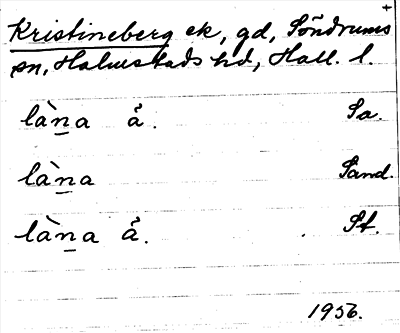 Kristineberg ek, gd, Söndrums
sn, Halmstads hd, Hall. l.
làṉa å. Sa.
làṉa Sand.
làṉa å. St.
1956.